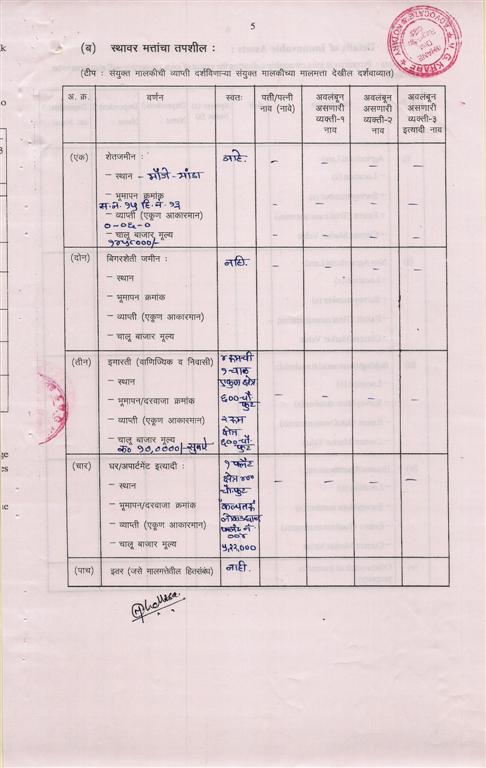 5
(ब) स्थावर मत्तांचा तपशील :
(टीप : संयुक्त मालकीची व्याप्ती दर्शविणाऱ्या संयुक्त मालकीच्या मालमत्ता देखील दर्शवाव्यात)
अ. क्र. वर्णन स्वतः पती/पत्नी नाव (नावे) अवलंबून असणारी व्यक्ती-१ नाव अवलंबून असणारी व्यक्ती-२ नाव अवलंबून असणारी व्यक्ती-३ इत्यादी नाव
(एक) शेतजमीन : आहे. - - - -
– स्थान - मौजे - मांडा
– भूमापन क्रमांक
स. नं. १५ हि. नं. १३
– व्याप्ती (एकूण आकारमान)
०-०६-०
– चालू बाजार मूल्य
(दोन) बिगरशेती जमीन : नाही. - - - -
– स्थान
– भूमापन क्रमांक
– व्याप्ती (एकूण आकारमान)
– चालू बाजार मूल्य
(तीन) इमारती (वाणिज्यिक व निवासी)
– स्थान १ चाळ
एकुण क्षेत्र
– भूमापन/दरवाजा क्रमांक ६०० चौ. फुट - - - -
– व्याप्ती (एकूण आकारमान) २ रूम
क्षेत्र
– चालू बाजार मूल्य ६०० चौ. फुट
(चार) घर/अपार्टमेंट इत्यादी : १ फ्लॅट
– स्थान क्षेत्र ४०० चौ. फुट - - - -
– भूमापन/दरवाजा क्रमांक
– व्याप्ती (एकूण आकारमान) फ्लॅट नं.
००४
– चालू बाजार मूल्य ५,२२,०००
(पाच) इतर (जसे मालमत्तेतील हितसंबंध) नाही.